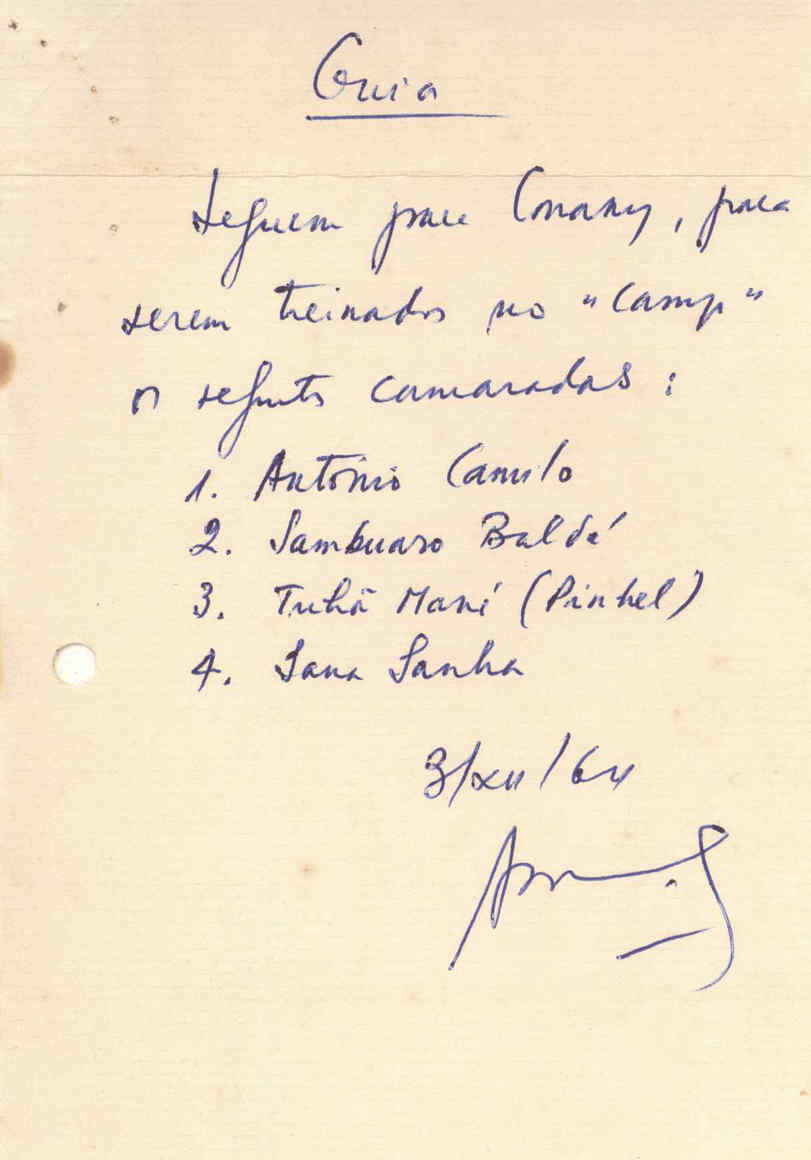 Guia
Seguem para Conakry, para
serem treinados no "Camp"
os segunts camaradas:
1. António Camilo
2. Sambuaro Baldé
3. Tuhã Mané (Pinhel)
4. Sana Sanha
3/XII/64